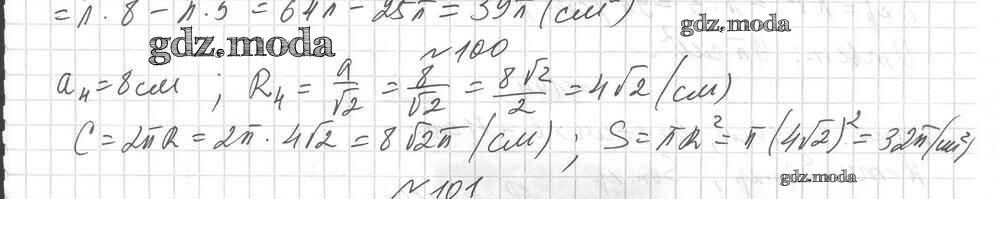 = π · 8² − π · 5² = 64π − 25π = 39π (см²)
gdz.moda
gdz.moda
№ 100
a₄ = 8 см ; R₄ = a/√2 = 8/√2 = 8√2/2 = 4√2 (см)
C = 2πR = 2π · 4√2 = 8√2π (см) ; S = πR² = π(4√2)² = 32π (см²)
gdz.moda
№ 101